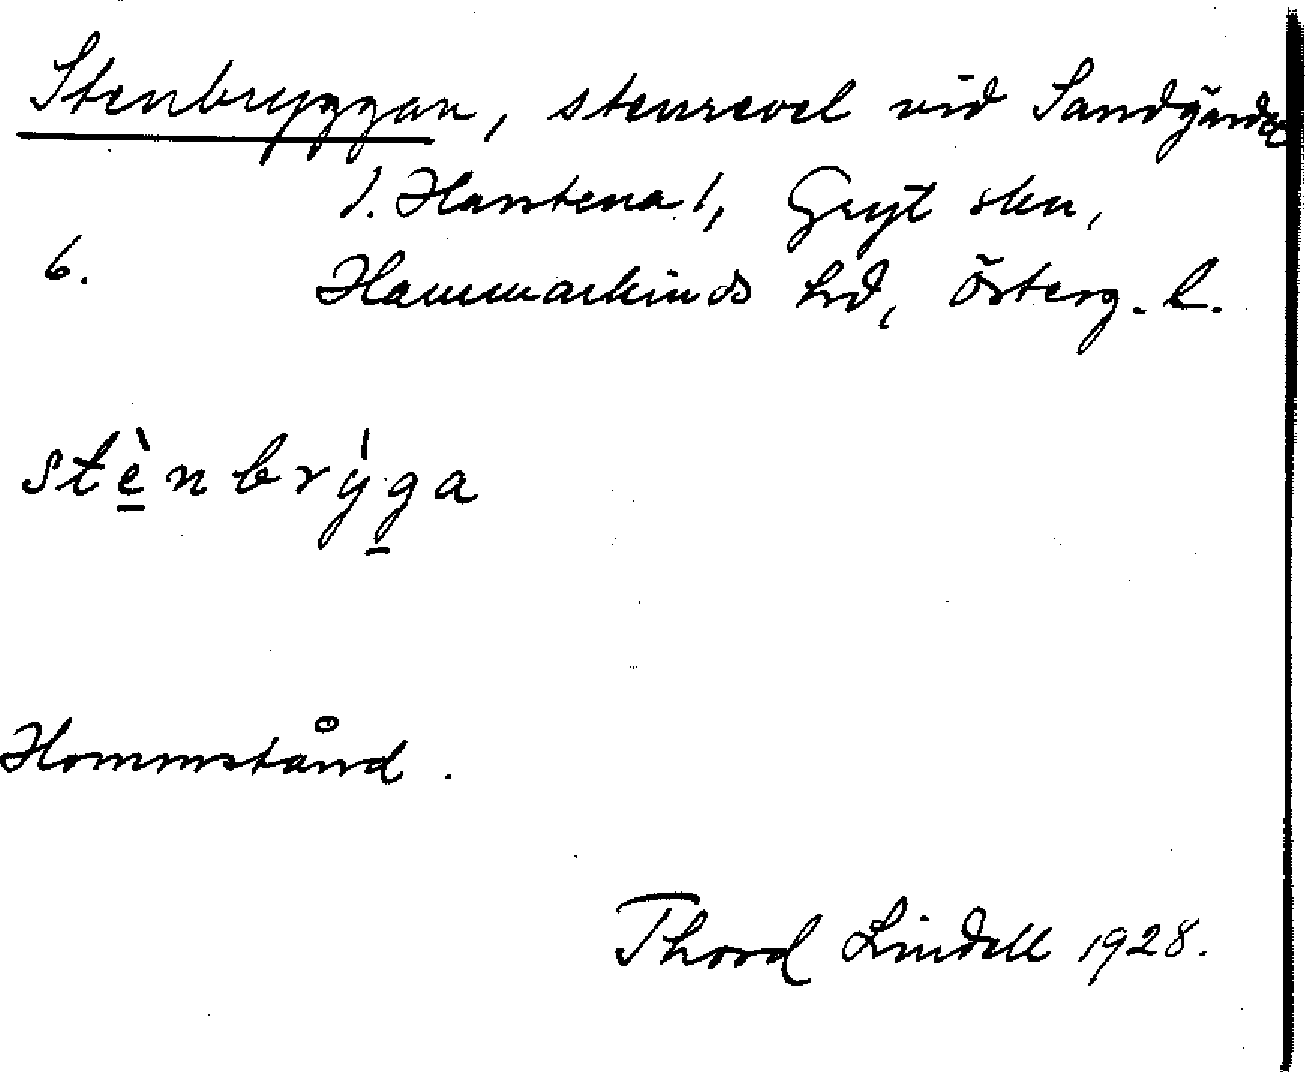 Stenbryggan, stenrevel vid Sandgärdet
1. Harstena 1, Gryt skn,
6. Hammarkinds hd, Österg. l.
stènbrýga
Hommstånd.
Thord Lindell 1928.